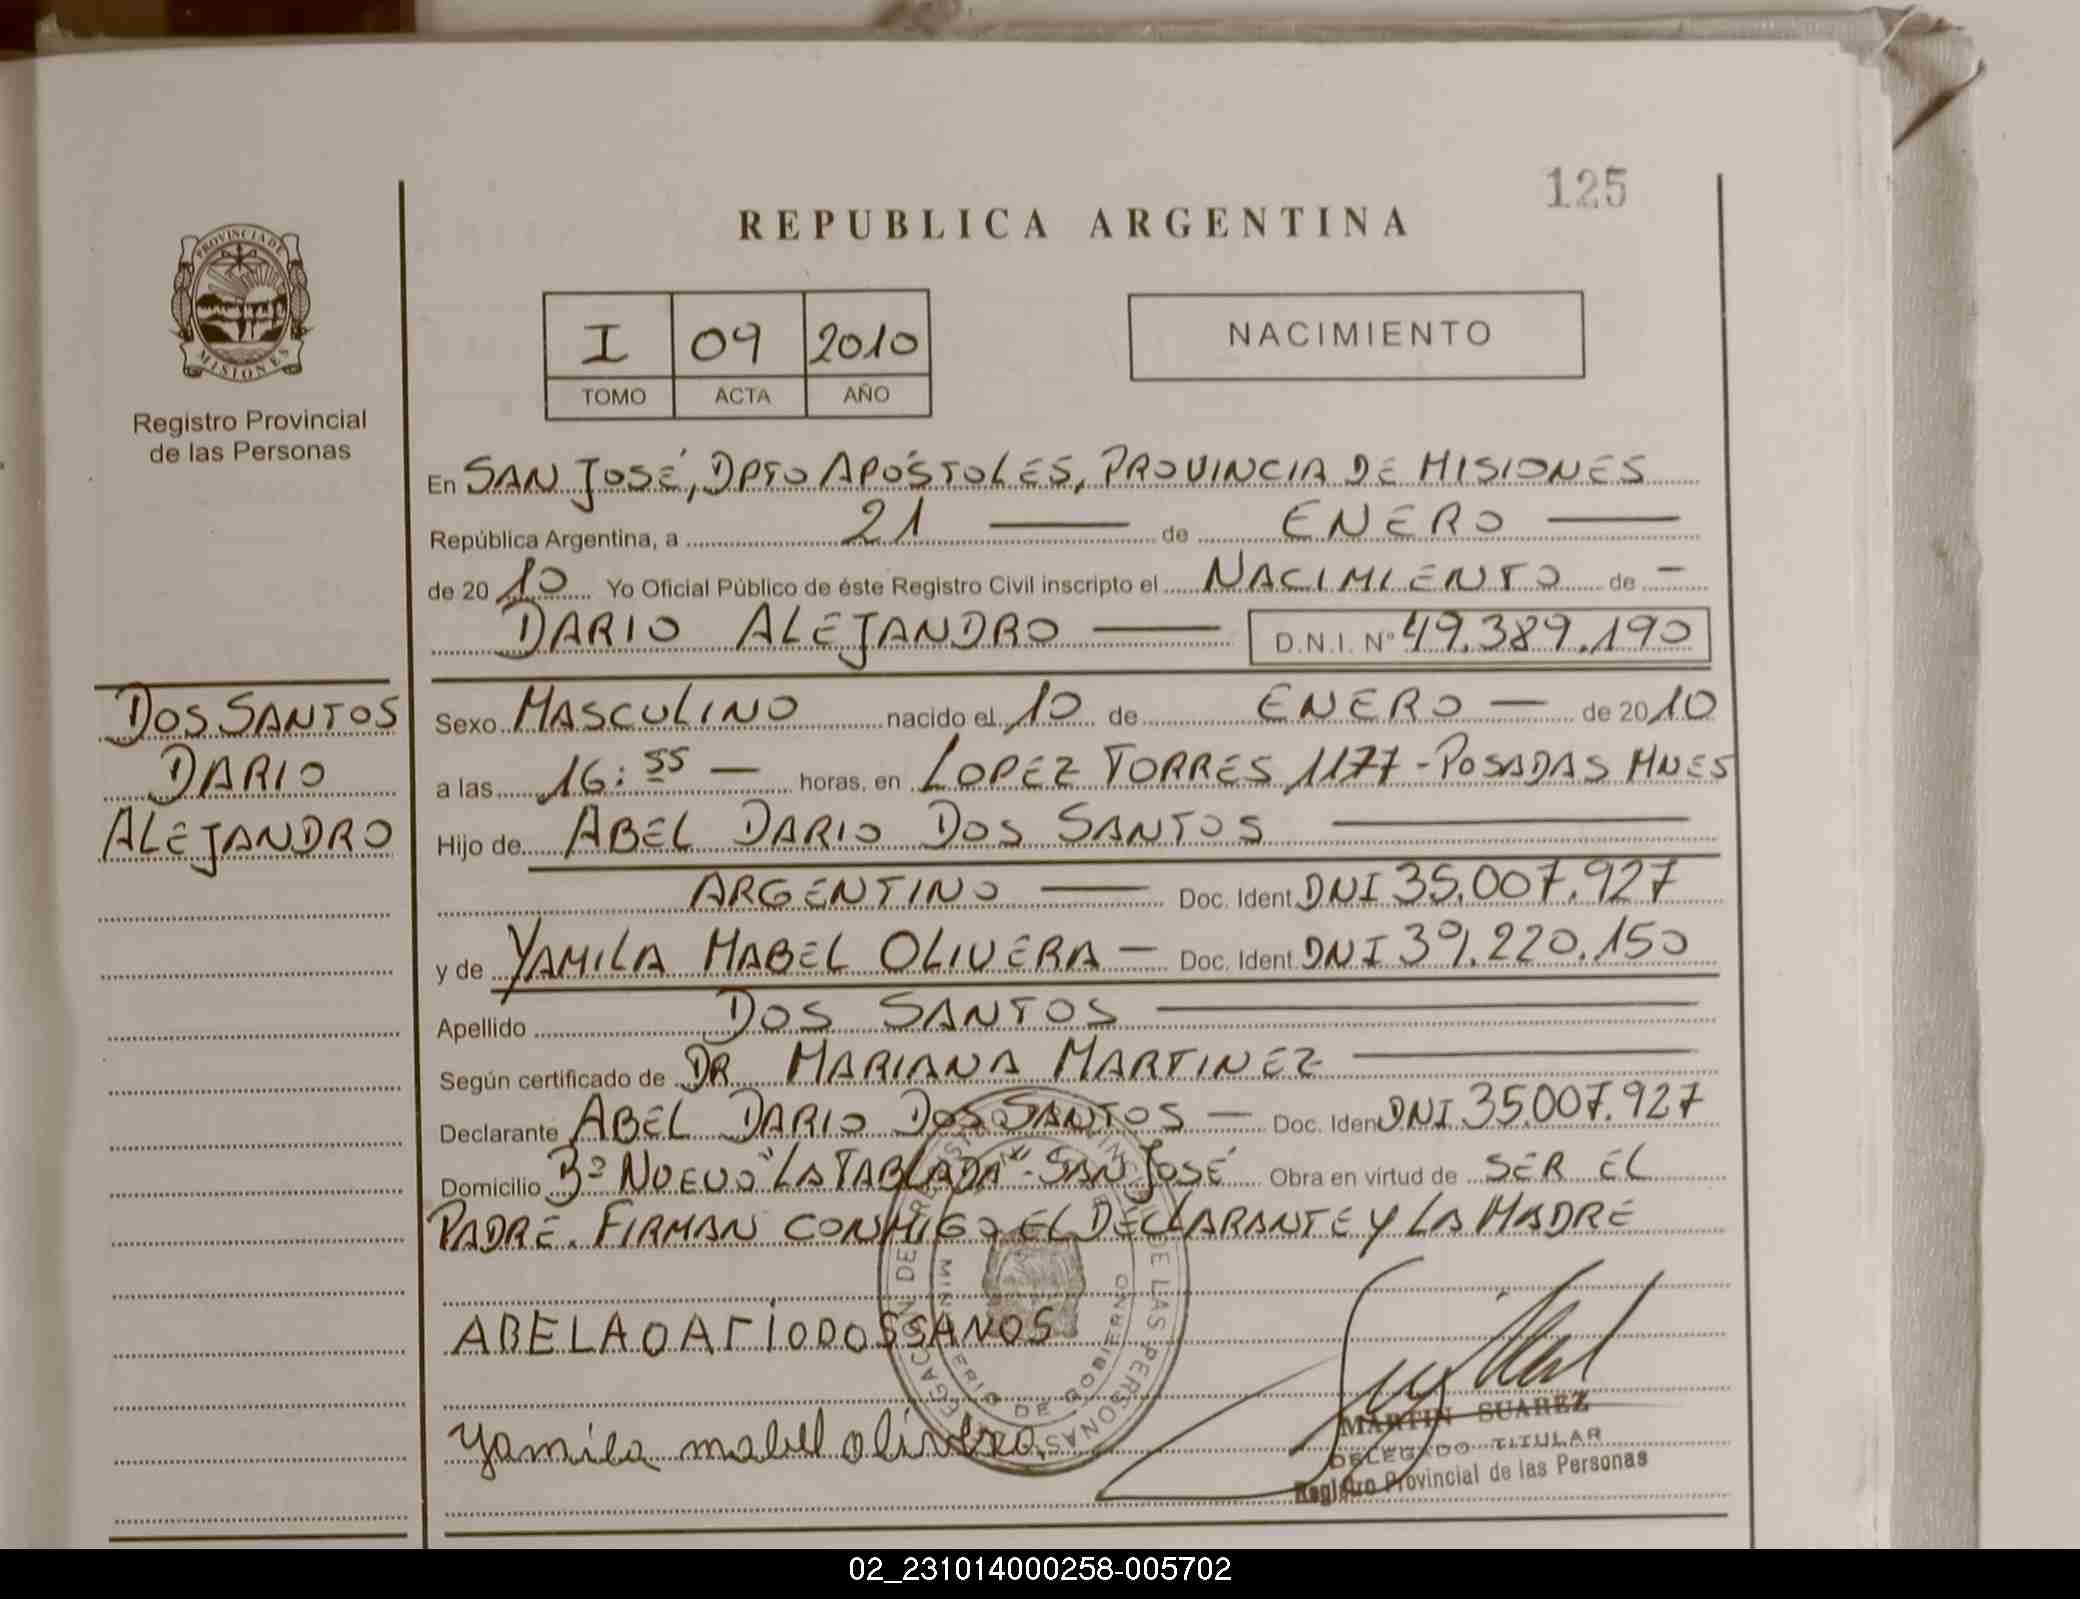 125
REPUBLICA ARGENTINA
PROVINCIA DE
MISIONES
Registro Provincial
de las Personas
I 09 2010
TOMO ACTA AÑO
NACIMIENTO
En SAN JOSÉ, DPTO APÓSTOLES, PROVINCIA DE MISIONES
República Argentina, a 21 — de ENERO —
de 20 10 Yo Oficial Público de éste Registro Civil inscripto el NACIMIENTO de —
DARIO ALEJANDRO — D.N.I. Nº 49.389.190
DOS SANTOS
DARIO
ALEJANDRO
Sexo MASCULINO nacido el 10 de ENERO — de 2010
a las 16:55 — horas, en LOPEZ TORRES 1177 - POSADAS MNES
Hijo de ABEL DARIO DOS SANTOS —
ARGENTINO — Doc. Ident. DNI 35.007.927
y de YAMILA MABEL OLIVERA — Doc. Ident. DNI 39.220.150
Apellido DOS SANTOS —
Según certificado de DR MARIANA MARTINEZ —
Declarante ABEL DARIO DOS SANTOS — Doc. Iden DNI 35.007.927
Domicilio Bº NUEVO "LA TABLADA" - SAN JOSÉ Obra en virtud de SER EL
PADRE. FIRMAN CONMIGO EL DECLARANTE Y LA MADRE
ABELAOARIODOSSANOS
yamila mabel olivera
MARTIN SUAREZ
DELEGADO TITULAR
Registro Provincial de las Personas
DE LAS PERSONAS
MINISTERIO DE GOBIERNO
02_231014000258-005702